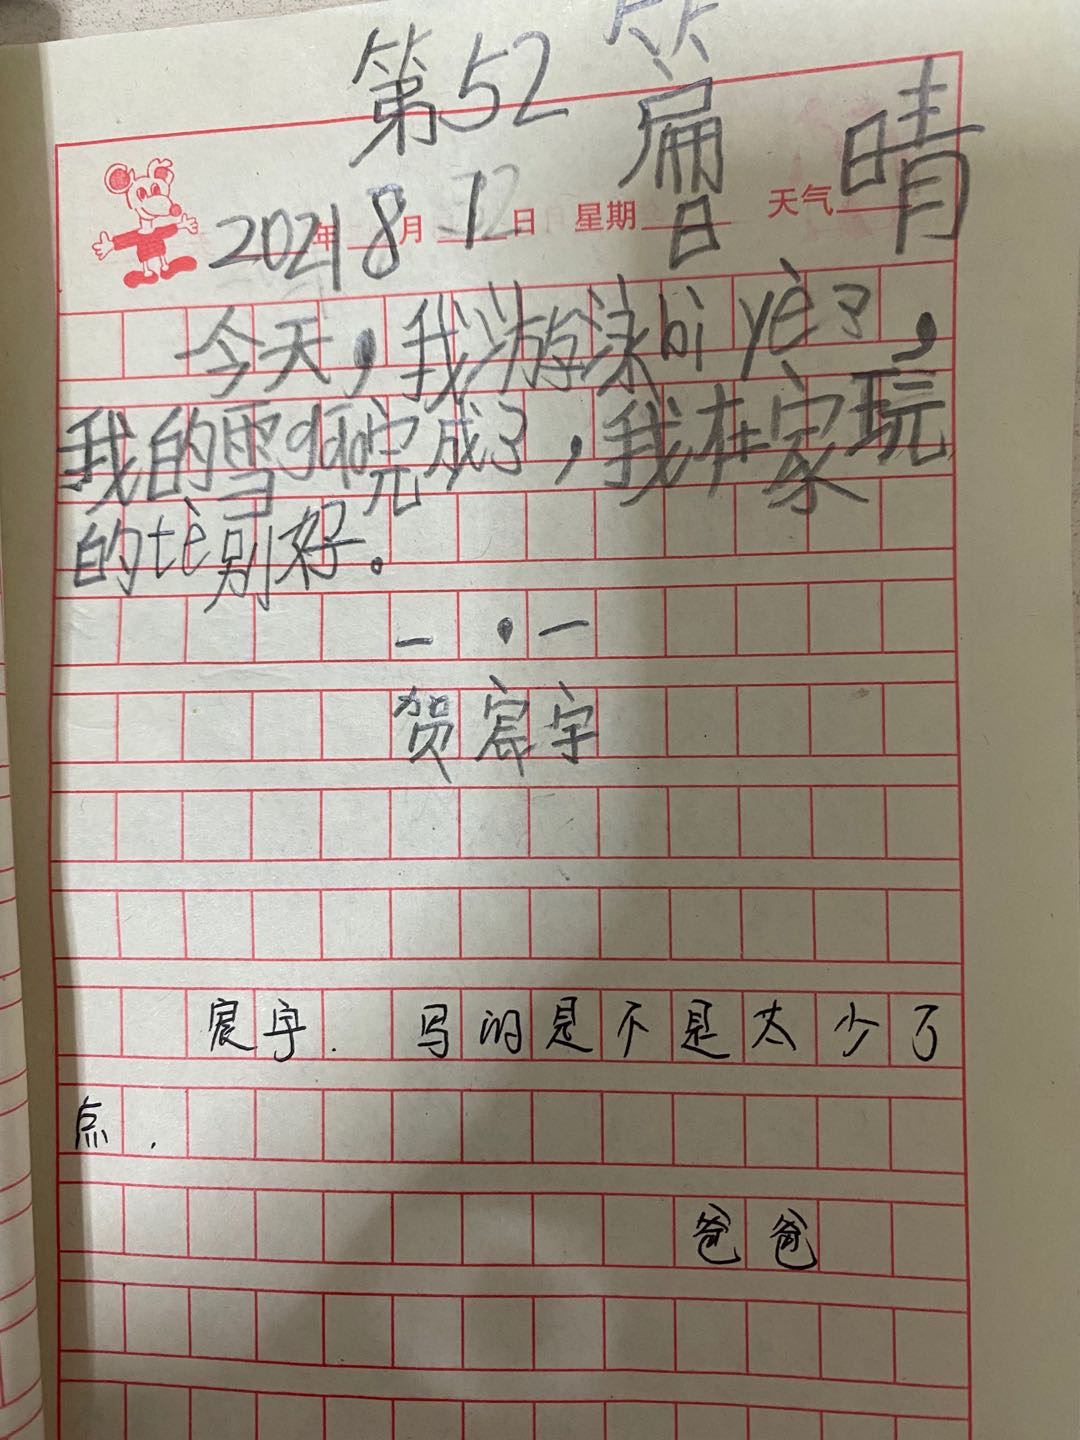 第52篇
2021年8月1日 星期日 天气晴
今天，我游泳bì yè了，
我的雪gāo完成了，我在家玩
的tè别好。
一·一
贺宸宇
宸宇. 写的是不是太少了
点.
爸爸